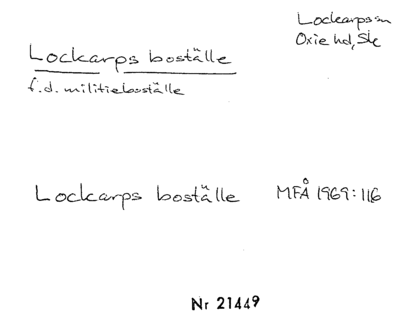 Lockarps sn
Oxie hd, Sk
Lockarps boställe
f.d. militieboställe
Lockarps boställe MFÅ 1969:116
Nr 21449